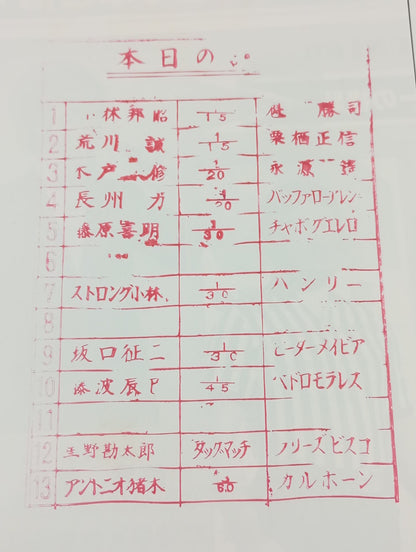 本日の
1 小林邦昭 1/15 佐 勝司
2 荒川 誠 1/15 栗栖正信
3 木戸 修 1/20 永源 遙
4 長州 力 1/20 バッファローアレン
5 藤原喜明 1/30 チャボグエレロ
6
7 ストロング小林 1/30 ハンリー
8
9 坂口征二 1/30 ピーターメイビア
10 藤波辰巳 1/45 ペドロモラレス
11
12 星野勘太郎 タッグマッチ フリーズビスコ
13 アントニオ猪木 1/60 カルホーン